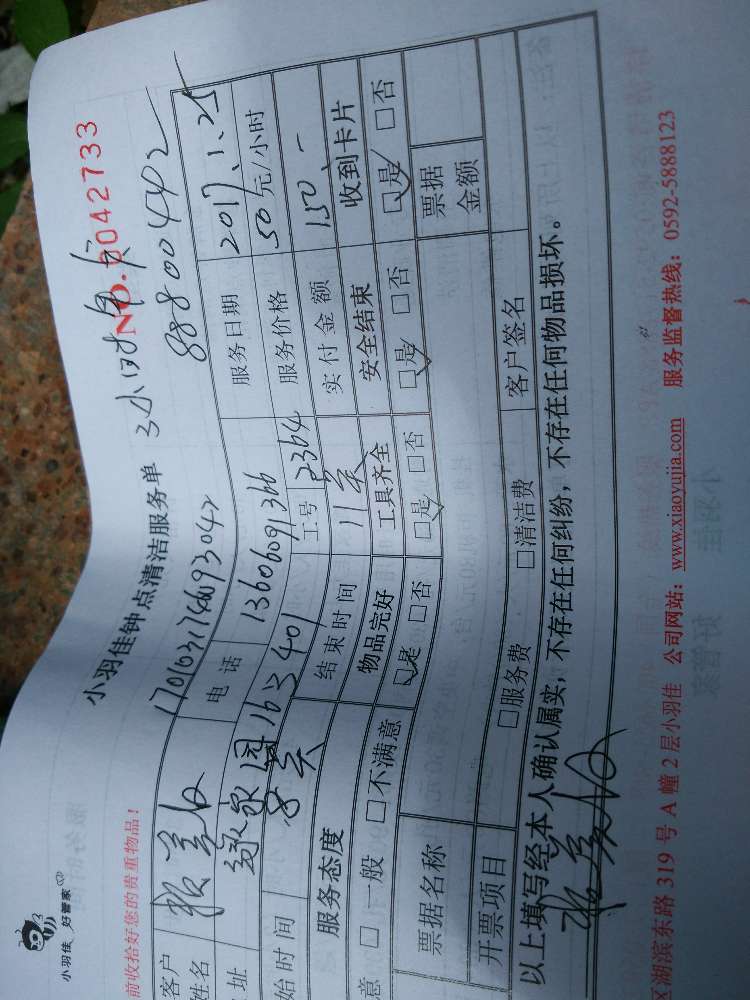 小羽佳 好管家
小羽佳钟点清洁服务单
3小时
NO.0042733
88800442
前收拾好您的贵重物品!
客户姓名
电话 13606091366
服务日期 2017.1.25
址
163 401
工号 2364
服务价格 50元/小时
始时间 8点
结束时间 11点
实付金额 150.-
服务态度 物品完好 工具齐全 安全结束 收到卡片
意 □一般 □不满意 □是 □否 □是 □否 □是 □否 □是 □否
票据名称
票据金额
开票项目 □服务费 □清洁费 客户签名
以上填写经本人确认属实,不存在任何纠纷,不存在任何物品损坏。
区湖滨东路 319 号 A 幢 2 层小羽佳 公司网站:www.xiaoyujia.com 服务监督热线:0592-5888123